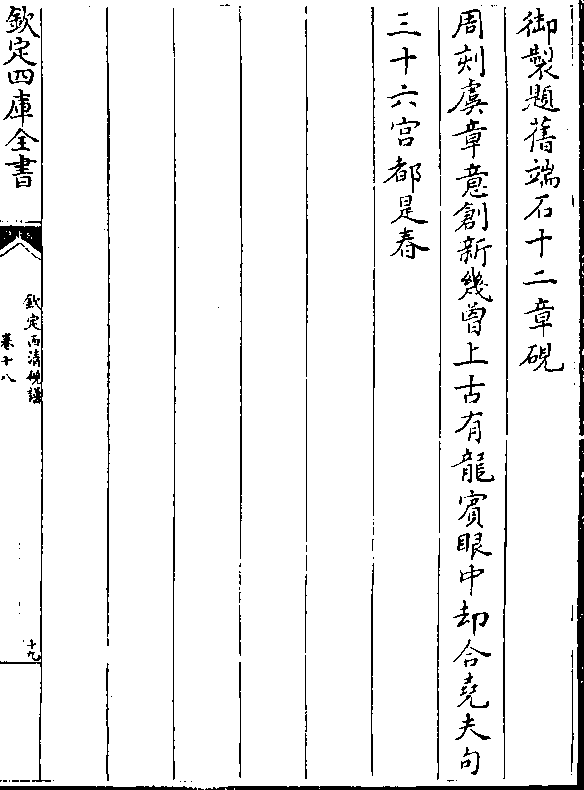 御製題舊端石十二章硯
周刻虞章意創新幾曾上古有龍賓眼中却合堯夫句
三十六宮都是春
欽定四庫全書
欽定西清硯譜
卷十八
十九